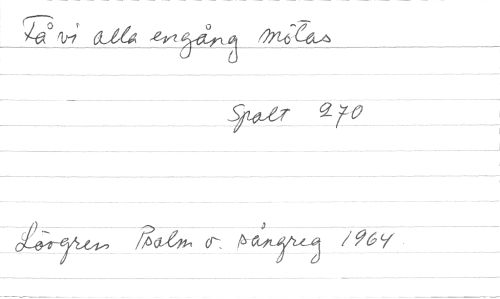 Få vi alla engång mötas
Spalt 270
Lövgren Psalm o. sångreg 1964